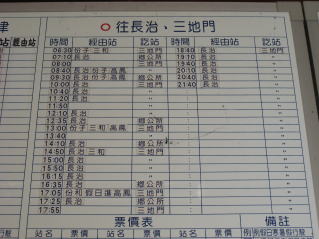 津
○往長治、三地門
站 經由站 時間 經由站 訖站 時間 經由站 訖站
06:30 份子 三和 三地門 18:40 長治 三地門
07:10 長治 鄉公所 19:10 長治 〃
08:00 三地門 19:40 長治 〃
08:40 長治 份子 高鳳 鄉公所 20:10 長治 〃
09:30 長治 三地門 20:40 長治 〃
10:00 長治 〃 21:40 長治 〃
10:40 長治 〃
11:20 長治 〃
11:50 〃
12:10 長治 〃
12:35 長治 鄉公所
13:00 份子 三和 高鳳 三地門
13:40 〃
14:10 長治 鄉公所
14:50 長治 三和 三地門
15:00 長治 〃
15:50 長治 〃
16:15 長治 〃
16:35 長治 鄉公所
17:05 份和 假日進高鳳 三地門
17:25 長治 鄉公所
17:55 三地門
票價表 備註
站名 票價 站名 票價 站名 票價